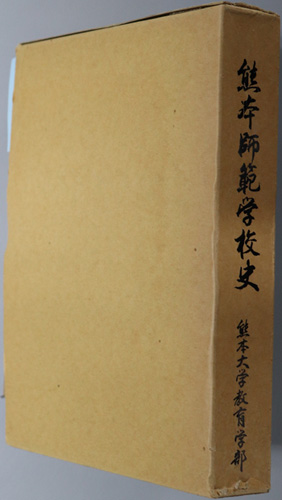 熊本師範学校史
熊本大学教育学部